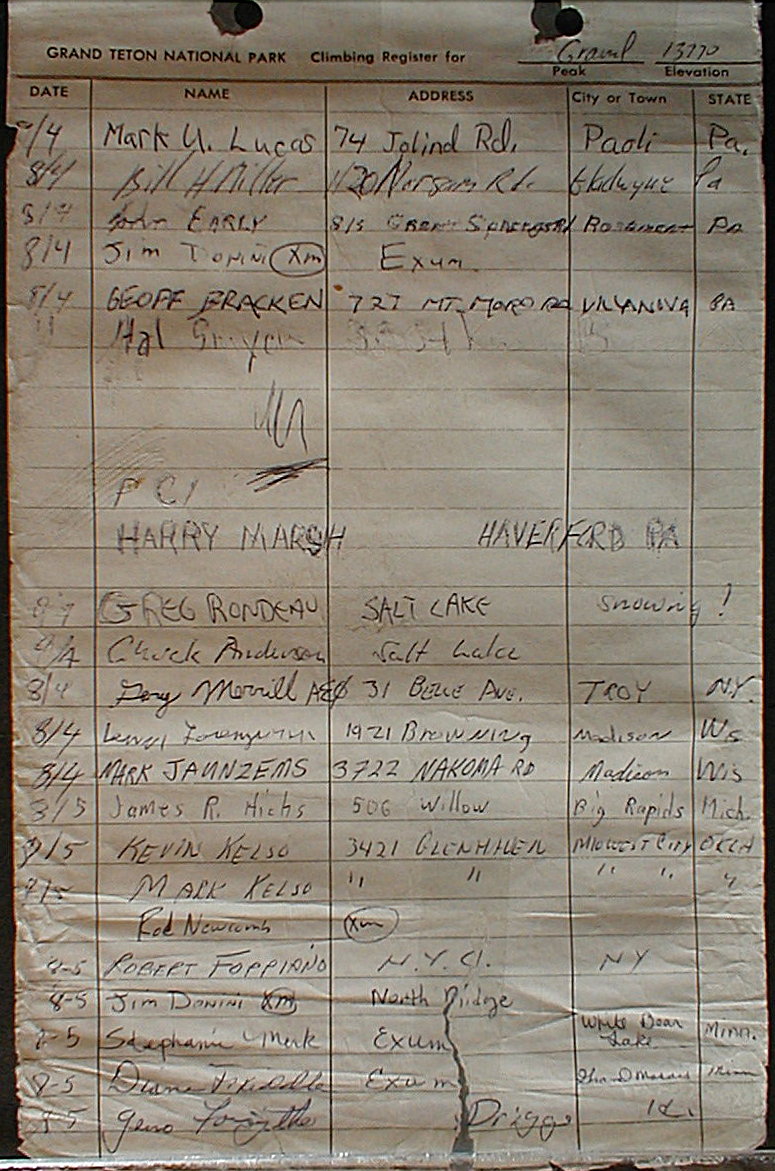 GRAND TETON NATIONAL PARK Climbing Register for Grand 13770
Peak Elevation
DATE NAME ADDRESS City or Town STATE
8/4 Mark U. Lucas 74 Jolind Rd. Paoli Pa.
8/4 Bill H Miller Rd. Pa
8/4 John EARLY 815 PA
8/4 Jim Donini Xm Exum
8/4 GEOFF BRACKEN 727 MT. MORO RD VILLANOVA PA
" Hal
P C
HARRY MARSH HAVERFORD PA
GREG RONDEAU SALT LAKE Snowing!
8/4 Chuck Anderson Salt Lake
8/4 Merrill 31 BELLE AVE. TROY N.Y.
8/4 1921 Browning Madison Ws
8/4 MARK JAUNZEMS 3722 NAKOMA RD Madison Wis
8/5 James R. Hichs 506 Willow Big Rapids Mich.
8/5 KEVIN KELSO 3421 GLENHAVEN MIDWEST CITY OKLA
8/5 MARK KELSO " " " " "
Rod Newcomb Xm
8-5 ROBERT FOPPIANO N.Y.C. NY
8-5 Jim Donini Xm North Ridge
8-5 Stephanie Exum White Bear Lake Minn.
8-5 Diane Exum Minn
8-5 Geno Forsythe Driggs Id.